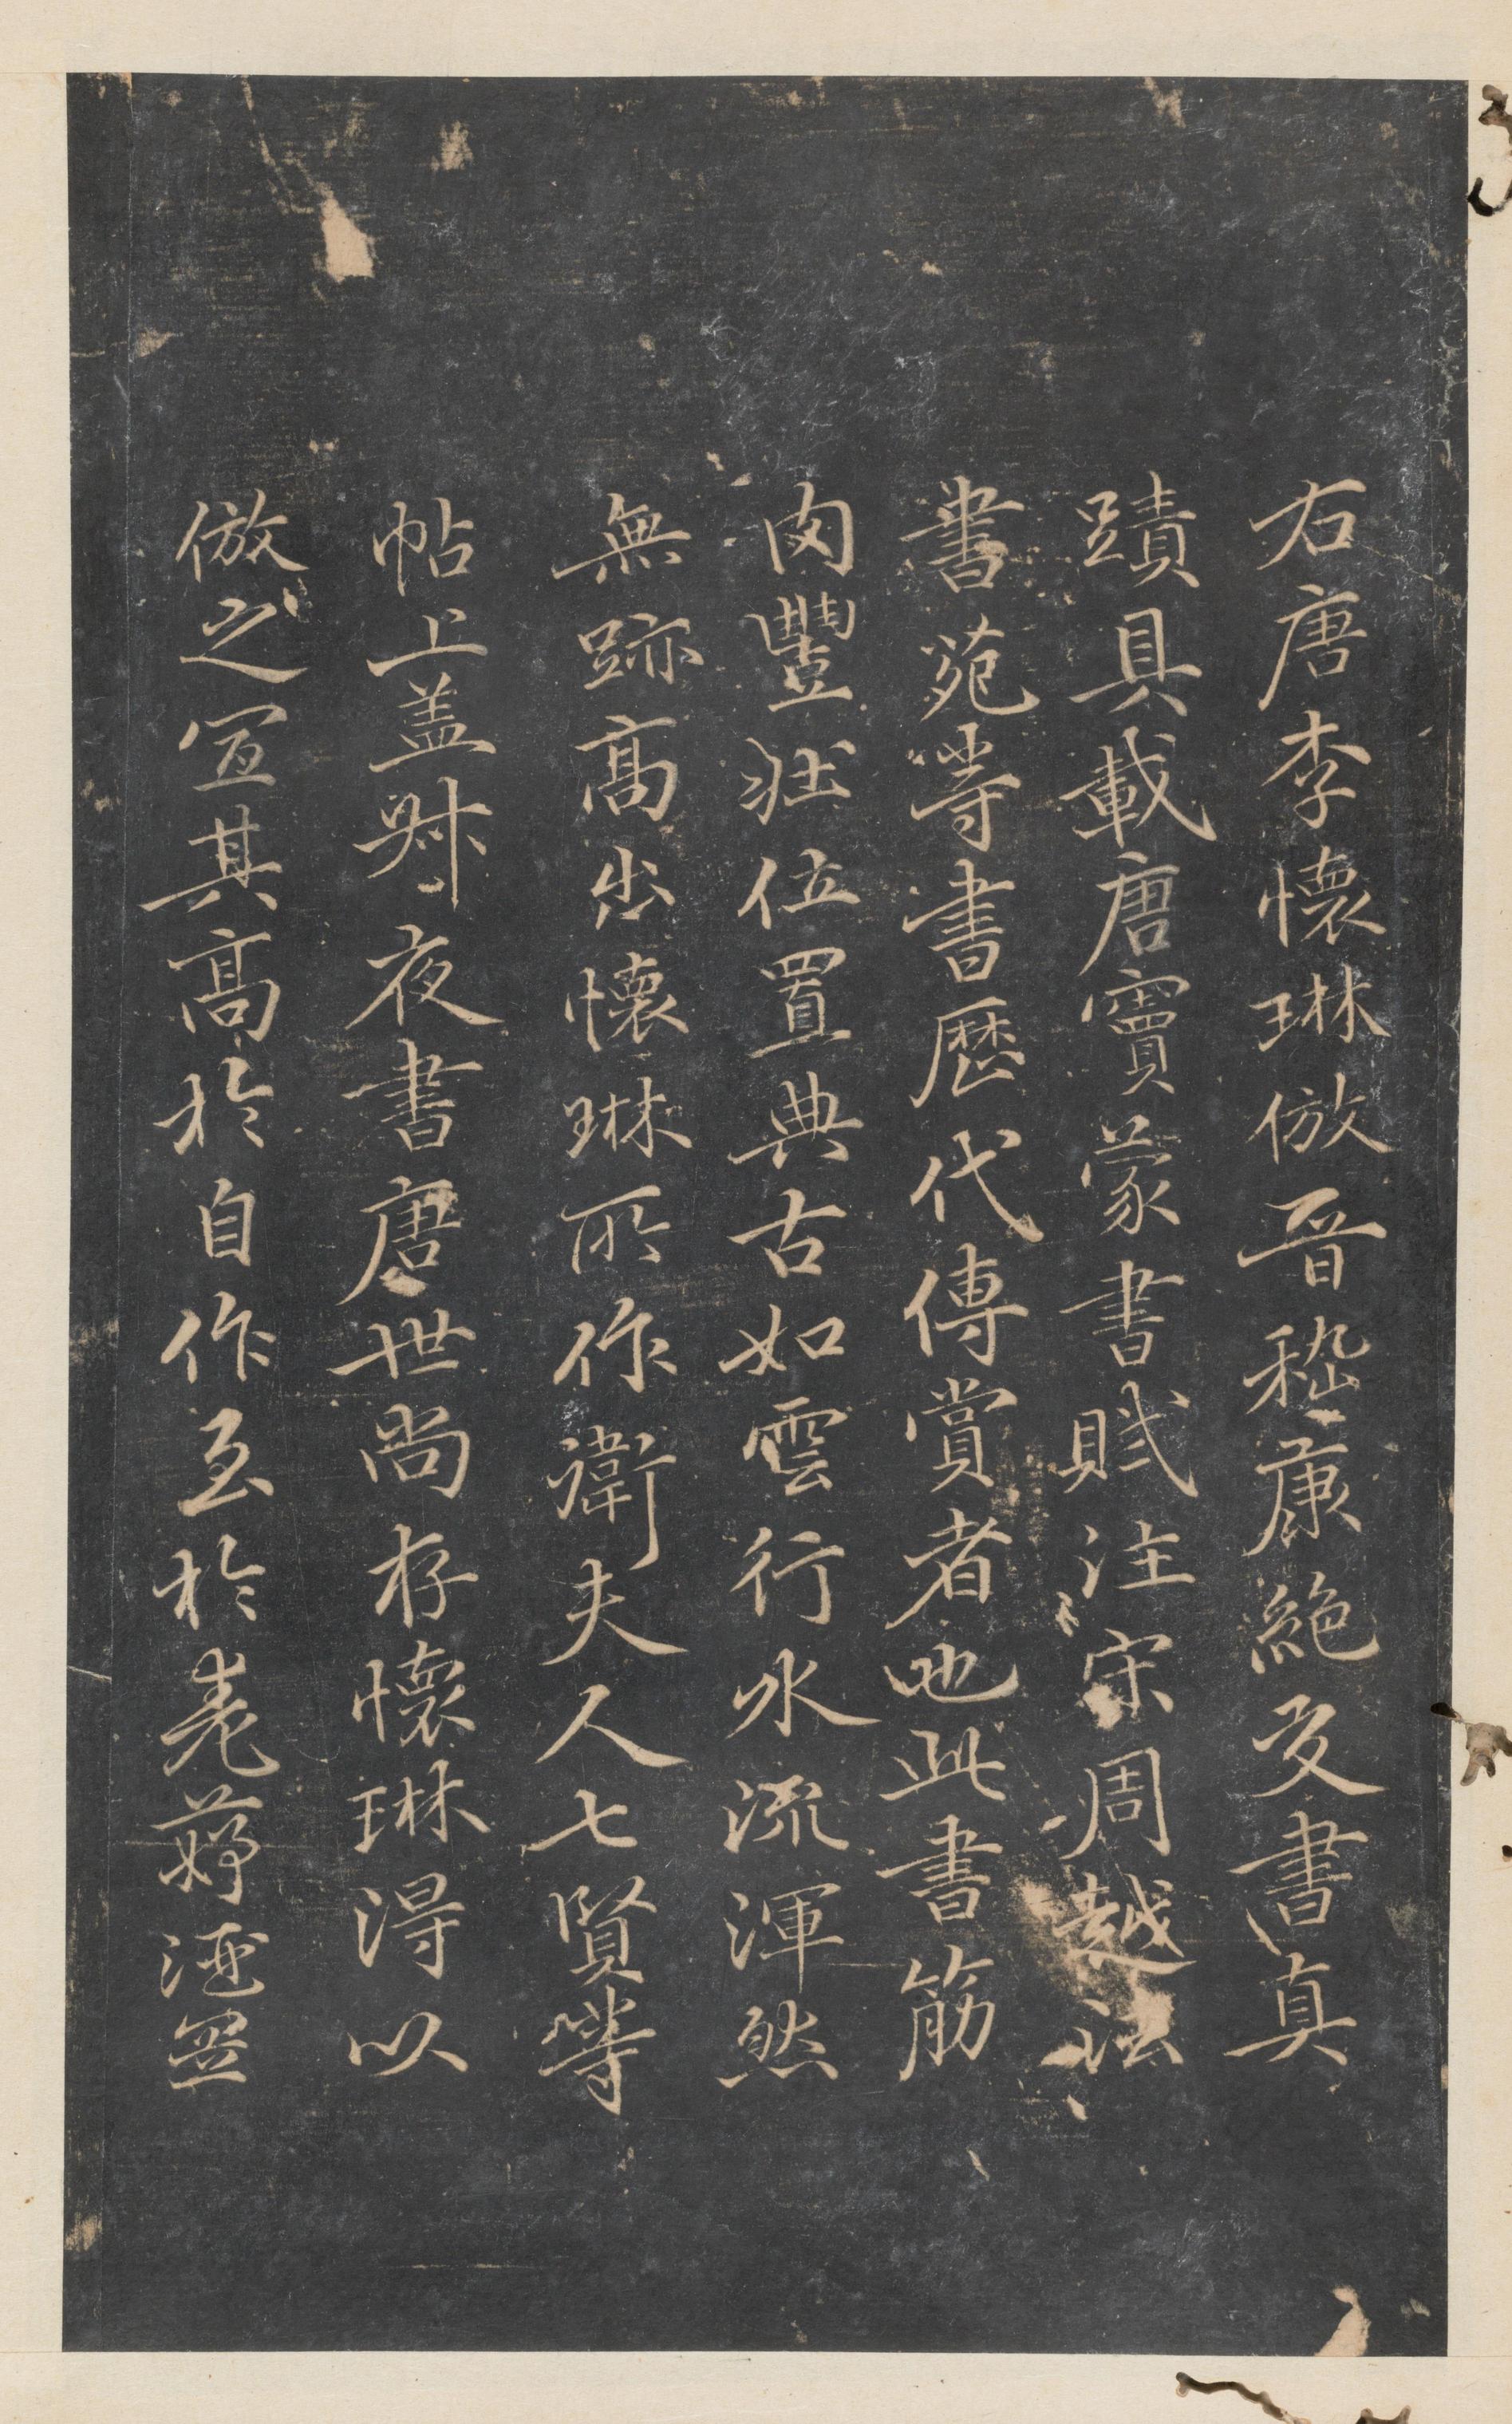 右唐李懷琳倣晉嵇康絶交書真
蹟具載唐竇蒙書賦注宋周越法
書苑等書歷代傳賞者也此書筋
肉豐壯位置典古如雲行水流渾然
無跡高出懷琳所作衛夫人七賢等
帖上盖叔夜書唐世尚存懷琳得以
倣之宜其高於自作至於表